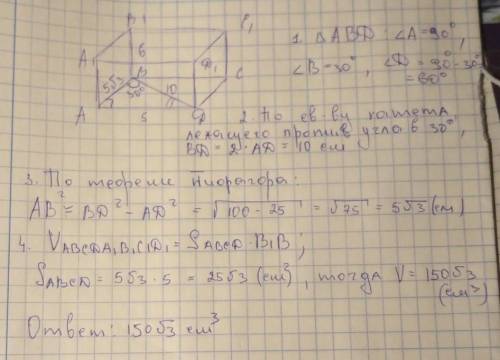 B1
C1
A
6
D1
B
5√3
30°
10
C
A
5
D
1. △ABD: ∠A=90°,
∠B=30°, ∠D=90°-30°
=60°
2. По св-ву катета
лежащего против угла в 30°,
BD = 2·AD = 10 см
3. По теореме Пифагора:
AB² = BD² - AD² = √100-25 = √75 = 5√3 (см)
4. VABCDA1B1C1D1 = SABCD·B1B;
SABCD = 5√3·5 = 25√3 (см²), тогда V = 150√3
(см³)
Ответ: 150√3 см³